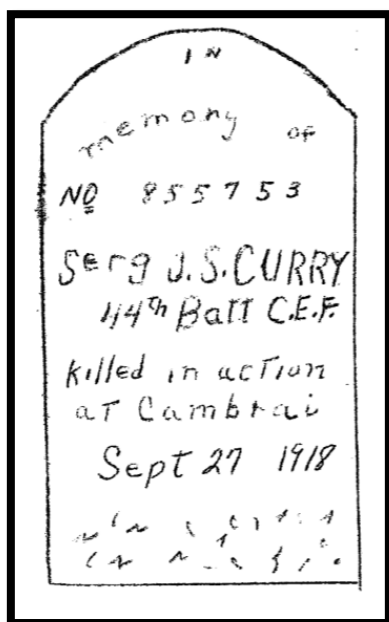 IN
memory of
NO 855753
Serg J.S. CURRY
44th Batt C.E.F.
killed in action
at Cambrai
Sept 27 1918